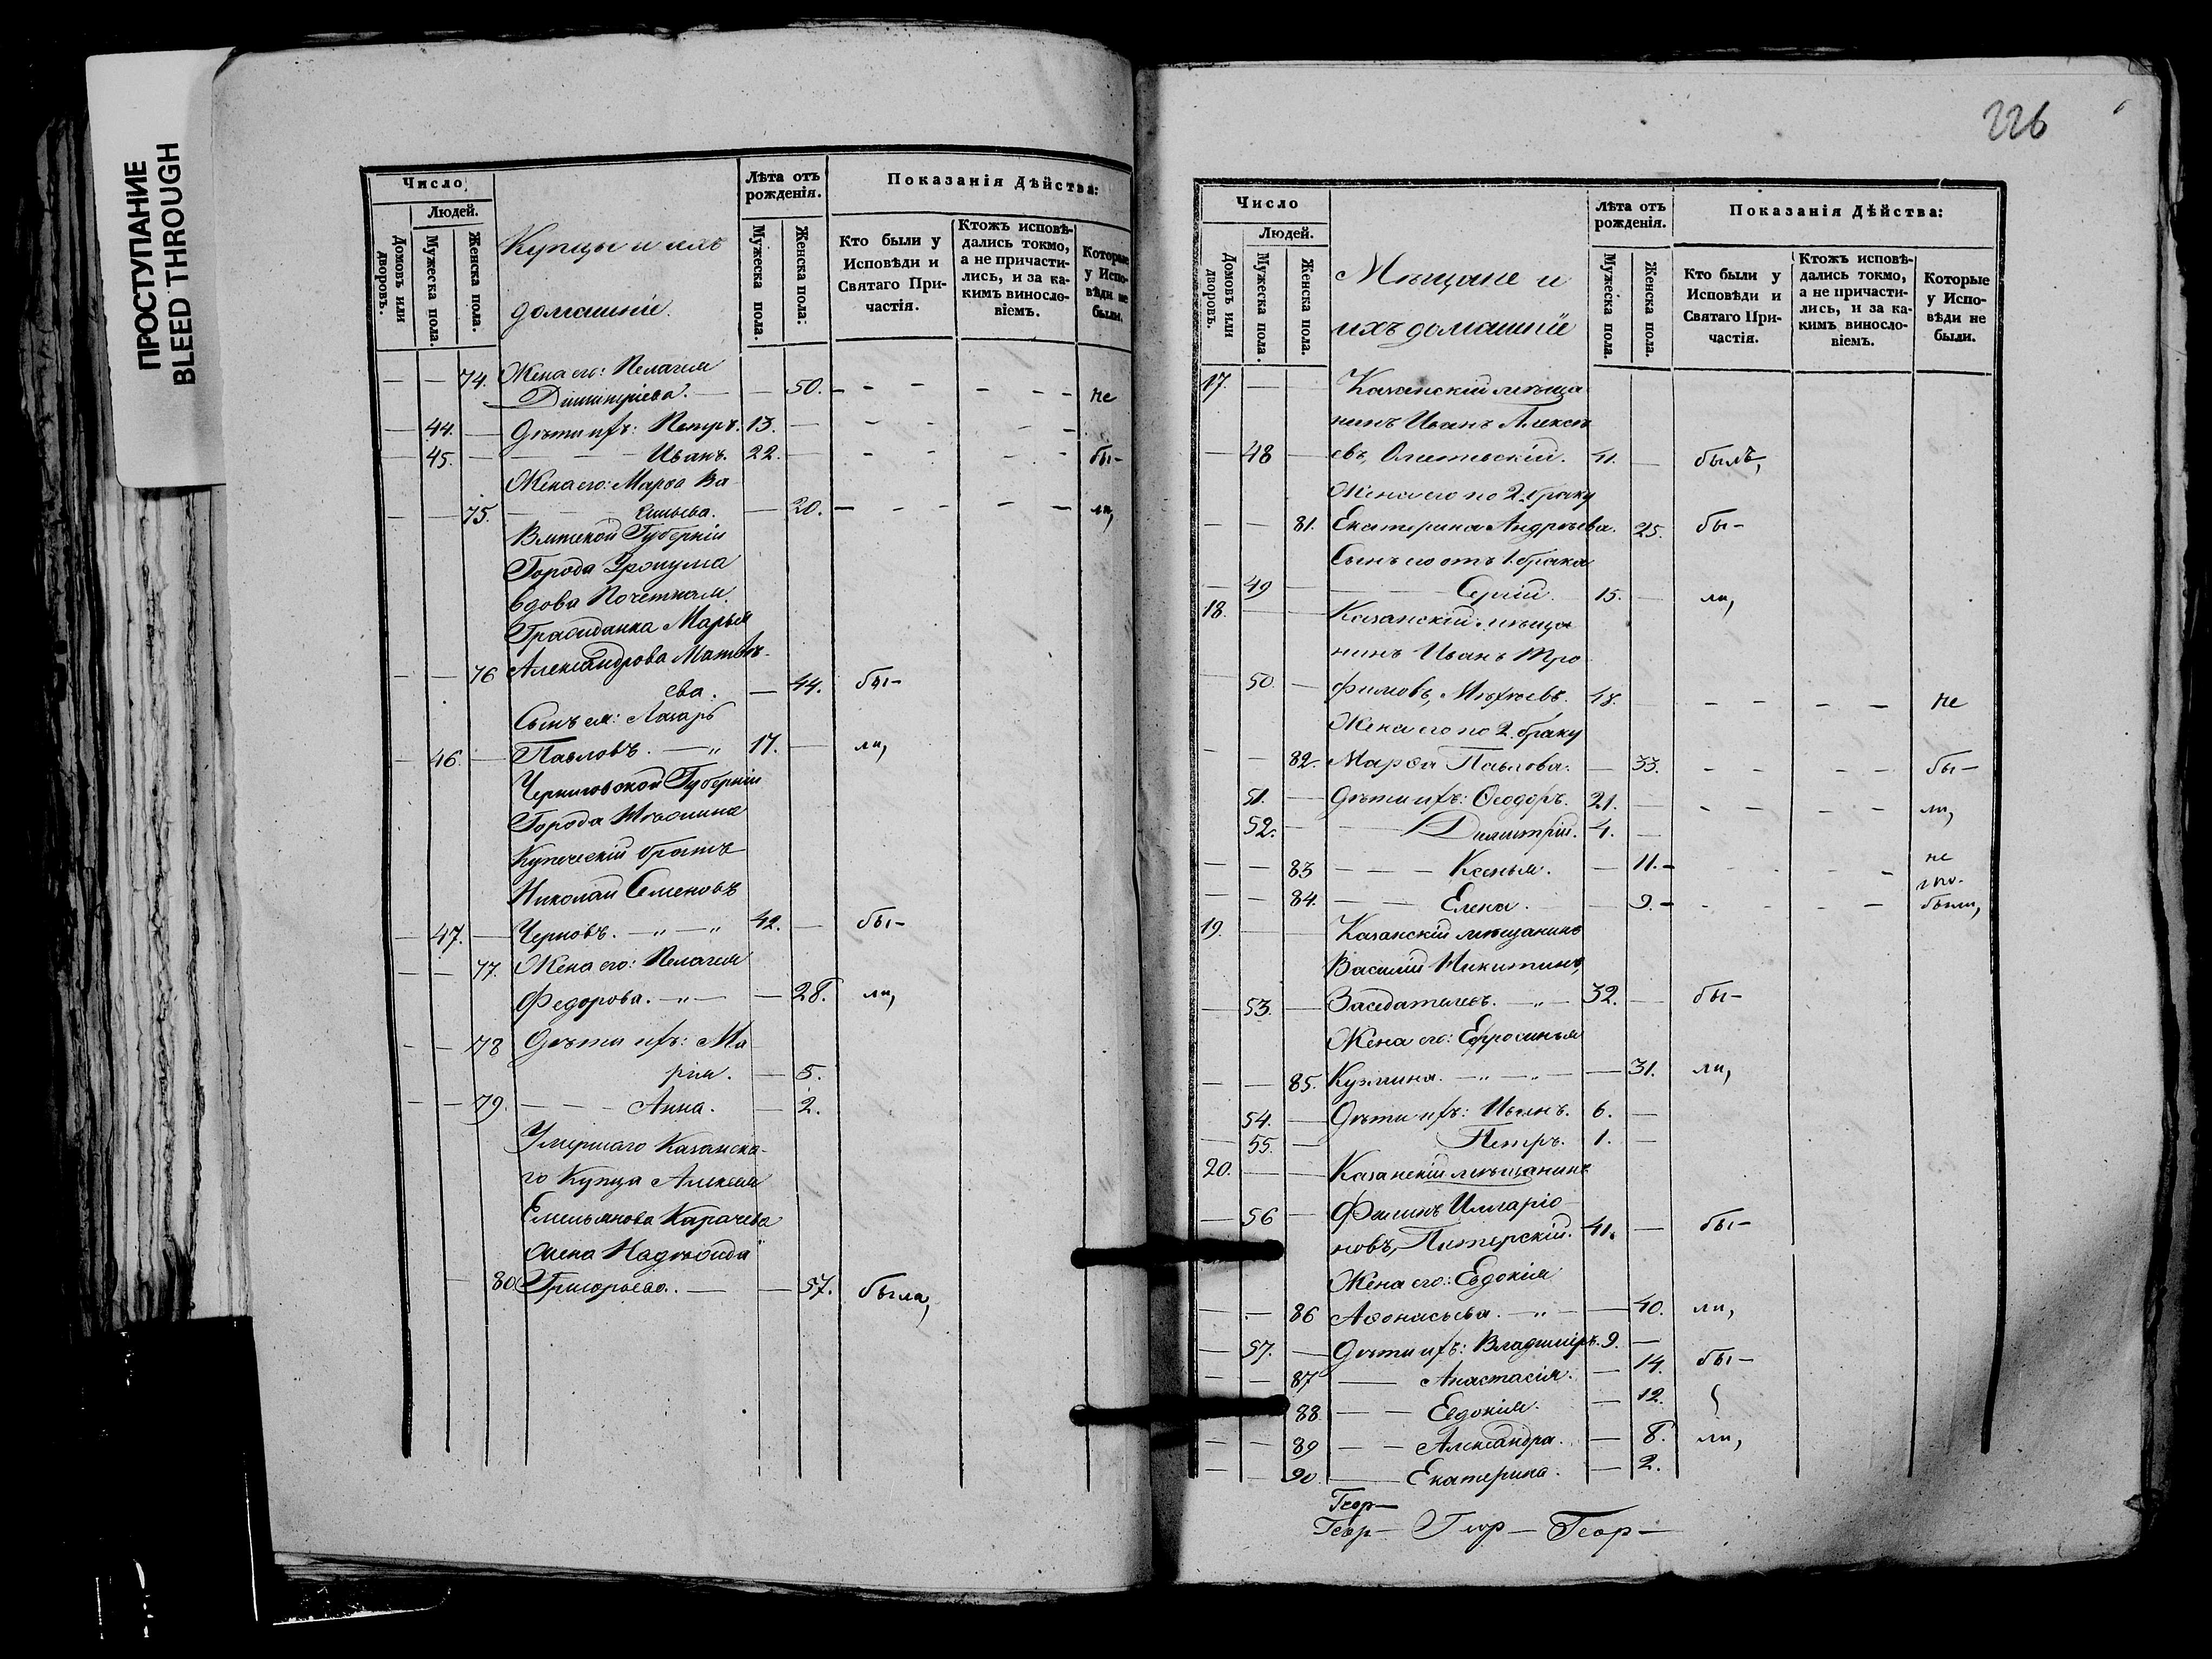 ПРОСТУПАНИЕ
BLEED THROUGH
Число
Людей.
Домовъ или дворовъ.
Мужеска пола.
Женска пола.
Купцы и ихъ
домашніе.
Лѣта отъ рожденія.
Мужеска пола.
Женска пола:
Показанія Дѣйства:
Кто были у Исповѣди и Святаго Причастія.
Ктожъ исповѣдались токмо, а не причастились, и за какимъ винословіемъ.
Которые у Исповѣди не были.
74. Жена его: Пелагея
Димитріева. — 50. не
44. Дѣти ихъ: Петръ. 13.
45. Иванъ. 22. бы-
Жена его: Марѳа Ва
75. сильева. 20. ли,
Вятской Губерніи
Города Уржума
вдова Почетная
Гражданка Марья
76 Александрова Матвѣ-
ева. — 44. бы-
Сынъ ея: Лазарь
46. Павловъ. — „ 17. ли,
Черниговской Губерніи
Города Мглина
Купеческій братъ
Николай Семеновъ
47. Черновъ. — „ — „ 42. бы-
77. Жена его: Пелагея
Федорова. — „ — 28. ли,
78 Дѣти ихъ: Ма
рія. — 5.
79. Анна. — 2.
Умершаго Казанска-
го Купца Алексея
Емельянова Карачева
жена Надѣжда
80. Григорьева. — 57. была,
226
Число
Людей.
Домовъ или дворовъ.
Мужеска пола.
Женска пола.
Мѣщане и
ихъ домашніе
Лѣта отъ рожденія.
Мужеска пола.
Женска пола.
Показанія Дѣйства:
Кто были у Исповѣди и Святаго Причастія.
Ктожъ исповѣдались токмо, а не причастились, и за какимъ винословіемъ.
Которые у Исповѣди не были.
17. Казанскій мѣща
нинъ Иванъ Алексѣ
48 евъ, 41. былъ,
Жена его по 2. браку
81. Екатерина Андреева. 25. бы-
Сынъ его отъ 1. брака
49 Сергій. 15. ли,
18. Казанскій мѣща
нинъ Иванъ Тро
50. фимовъ, 48. не
Жена его по 2. браку
82. Марѳа Павлова. — 33. бы-
51. Дѣти ихъ: Ѳеодоръ. 21. ли,
52. Димитрій. 4.
83 Ксенья. — 11. не
84. Елена. — 9. были,
19. Казанскій мѣщанинъ
Василій Никитинъ,
53. Засѣдателевъ. — „ — 32. бы-
Жена его: Ефросинья
85. Кузмина. — „ — „ — 31. ли,
54. Дѣти ихъ: Иванъ. 6.
55. Петръ. 1.
20. Казанскій мѣщанинъ
56 Филипъ Илларіо
новъ, Питерскій. 41. бы-
Жена его: Евдокія
86 Аѳонасьева. — „ — 40. ли,
57. Дѣти ихъ: Владиміръ. 9.
87 Анастасія. — 14. бы-
88. Евдокія. — 12.
89 Александра. — 8. ли,
90. Екатерина. — 2.
Геор—
Геор— Геор— Геор—